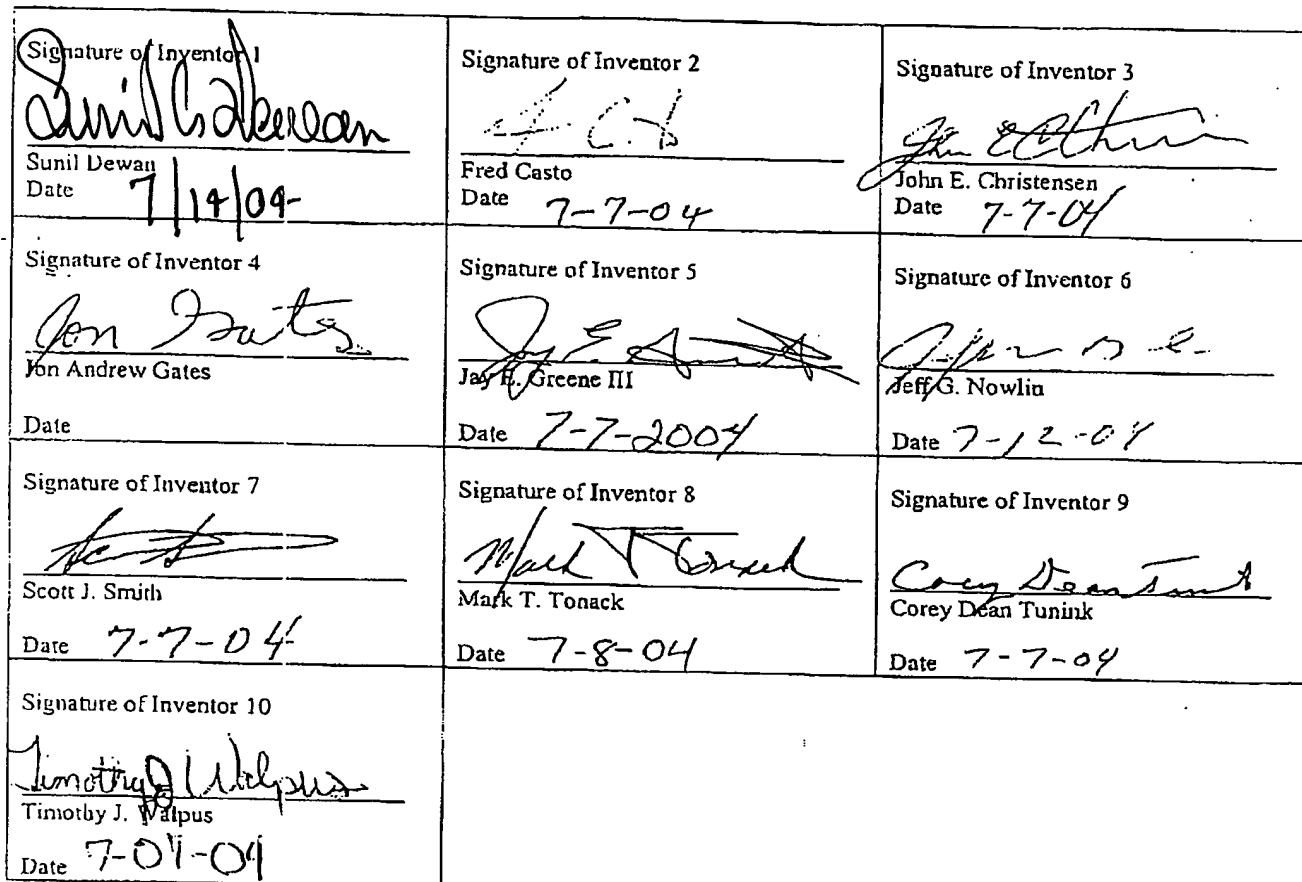 Signature of Inventor 1
Sunil Dewan
Sunil Dewan
Date 7/14/04
Signature of Inventor 2
Fred Casto
Date 7-7-04
Signature of Inventor 3
John E Chris
John E. Christensen
Date 7-7-04
Signature of Inventor 4
Jon Gates
Jon Andrew Gates
Date
Signature of Inventor 5
Jay E.
Jay E. Greene III
Date 7-7-2004
Signature of Inventor 6
Jeff G. Nowlin
Date 7-12-04
Signature of Inventor 7
Scott J. Smith
Date 7-7-04
Signature of Inventor 8
Mark T Tonack
Mark T. Tonack
Date 7-8-04
Signature of Inventor 9
Corey Dean Tunink
Corey Dean Tunink
Date 7-7-04
Signature of Inventor 10
Timothy J Walpus
Timothy J. Walpus
Date 7-07-04